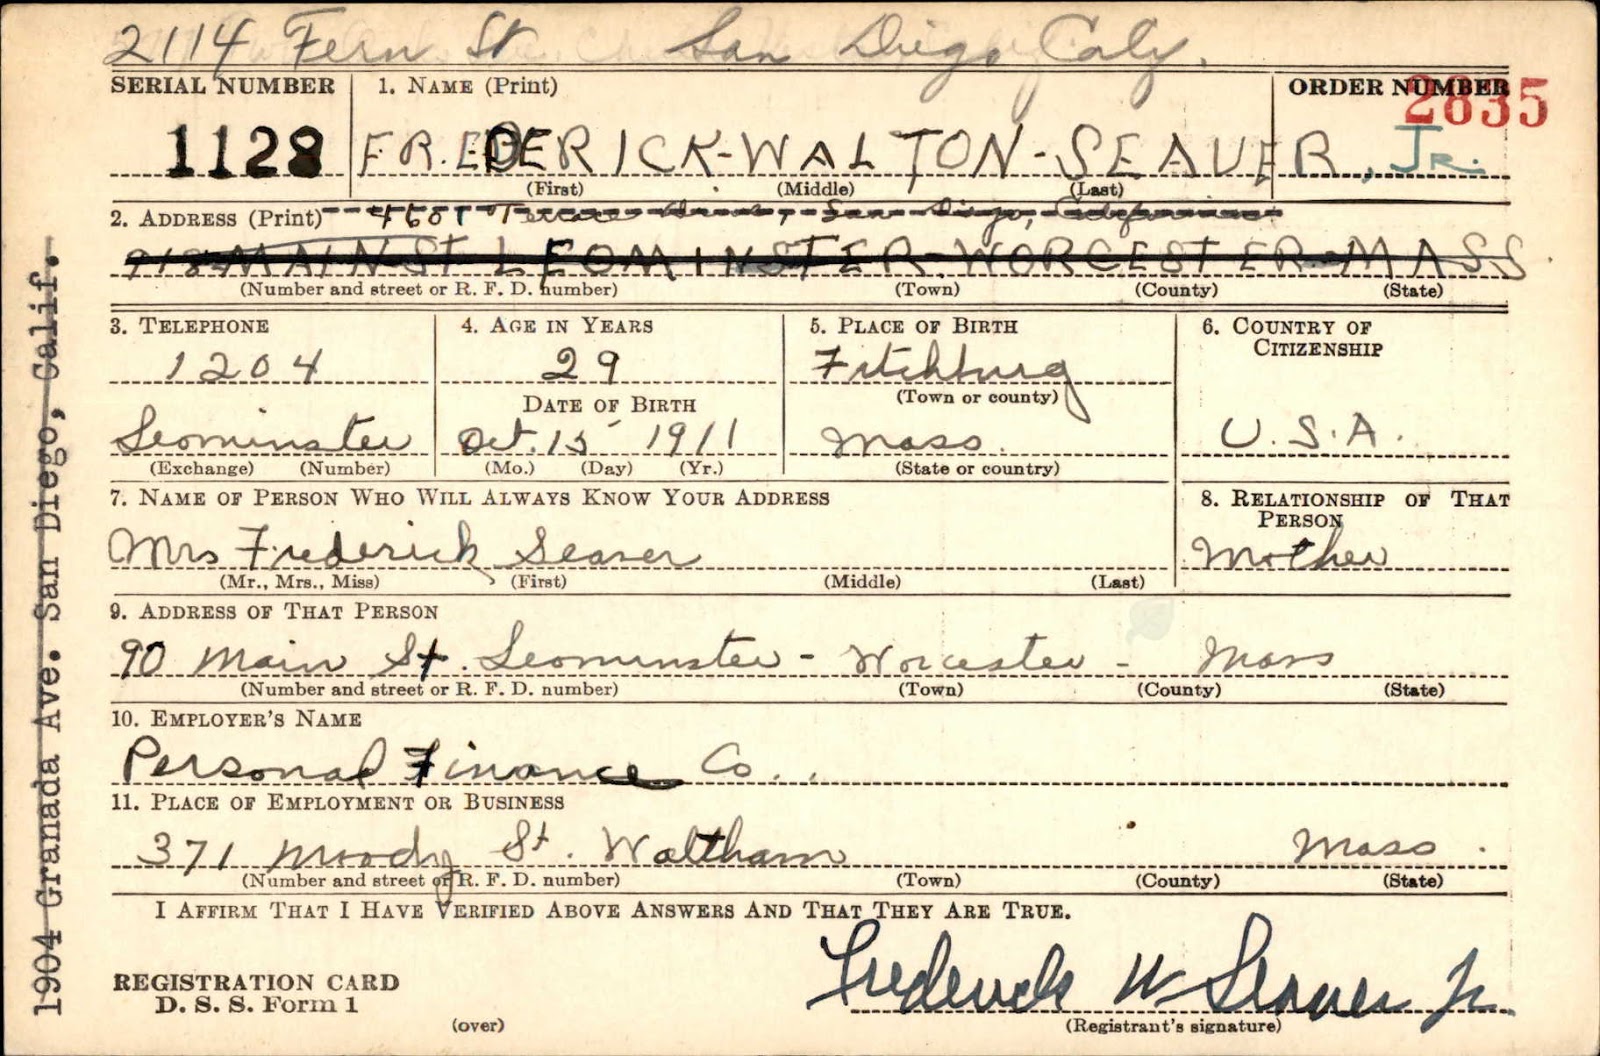 2114 Fern St San Diego Caly.
SERIAL NUMBER 1. NAME (Print) ORDER NUMBER
2835
1128 FREDERICK-WALTON-SEAVER, Jr.
(First) (Middle) (Last)
2. ADDRESS (Print) 4601 Terrace Drive, San Diego, California
918 MAIN ST LEOMINSTER-WORCESTER-MASS
(Number and street or R. F. D. number) (Town) (County) (State)
3. TELEPHONE 4. AGE IN YEARS 5. PLACE OF BIRTH 6. COUNTRY OF
CITIZENSHIP
1204 29 Fitchburg
(Town or county)
DATE OF BIRTH
Leominster Oct. 15 1911 Mass. U.S.A.
(Exchange) (Number) (Mo.) (Day) (Yr.) (State or country)
7. NAME OF PERSON WHO WILL ALWAYS KNOW YOUR ADDRESS 8. RELATIONSHIP OF THAT
PERSON
Mrs Frederick Seaver Mother
(Mr., Mrs., Miss) (First) (Middle) (Last)
9. ADDRESS OF THAT PERSON
90 Main St. Leominster - Worcester - Mass
(Number and street or R. F. D. number) (Town) (County) (State)
10. EMPLOYER'S NAME
Personal Finance Co..
11. PLACE OF EMPLOYMENT OR BUSINESS
371 Moody St. Waltham Mass.
(Number and street or R. F. D. number) (Town) (County) (State)
I AFFIRM THAT I HAVE VERIFIED ABOVE ANSWERS AND THAT THEY ARE TRUE.
REGISTRATION CARD
D. S. S. Form 1
Frederick W Seaver Jr.
(over) (Registrant's signature)
1904 Granada Ave. San Diego, Calif.